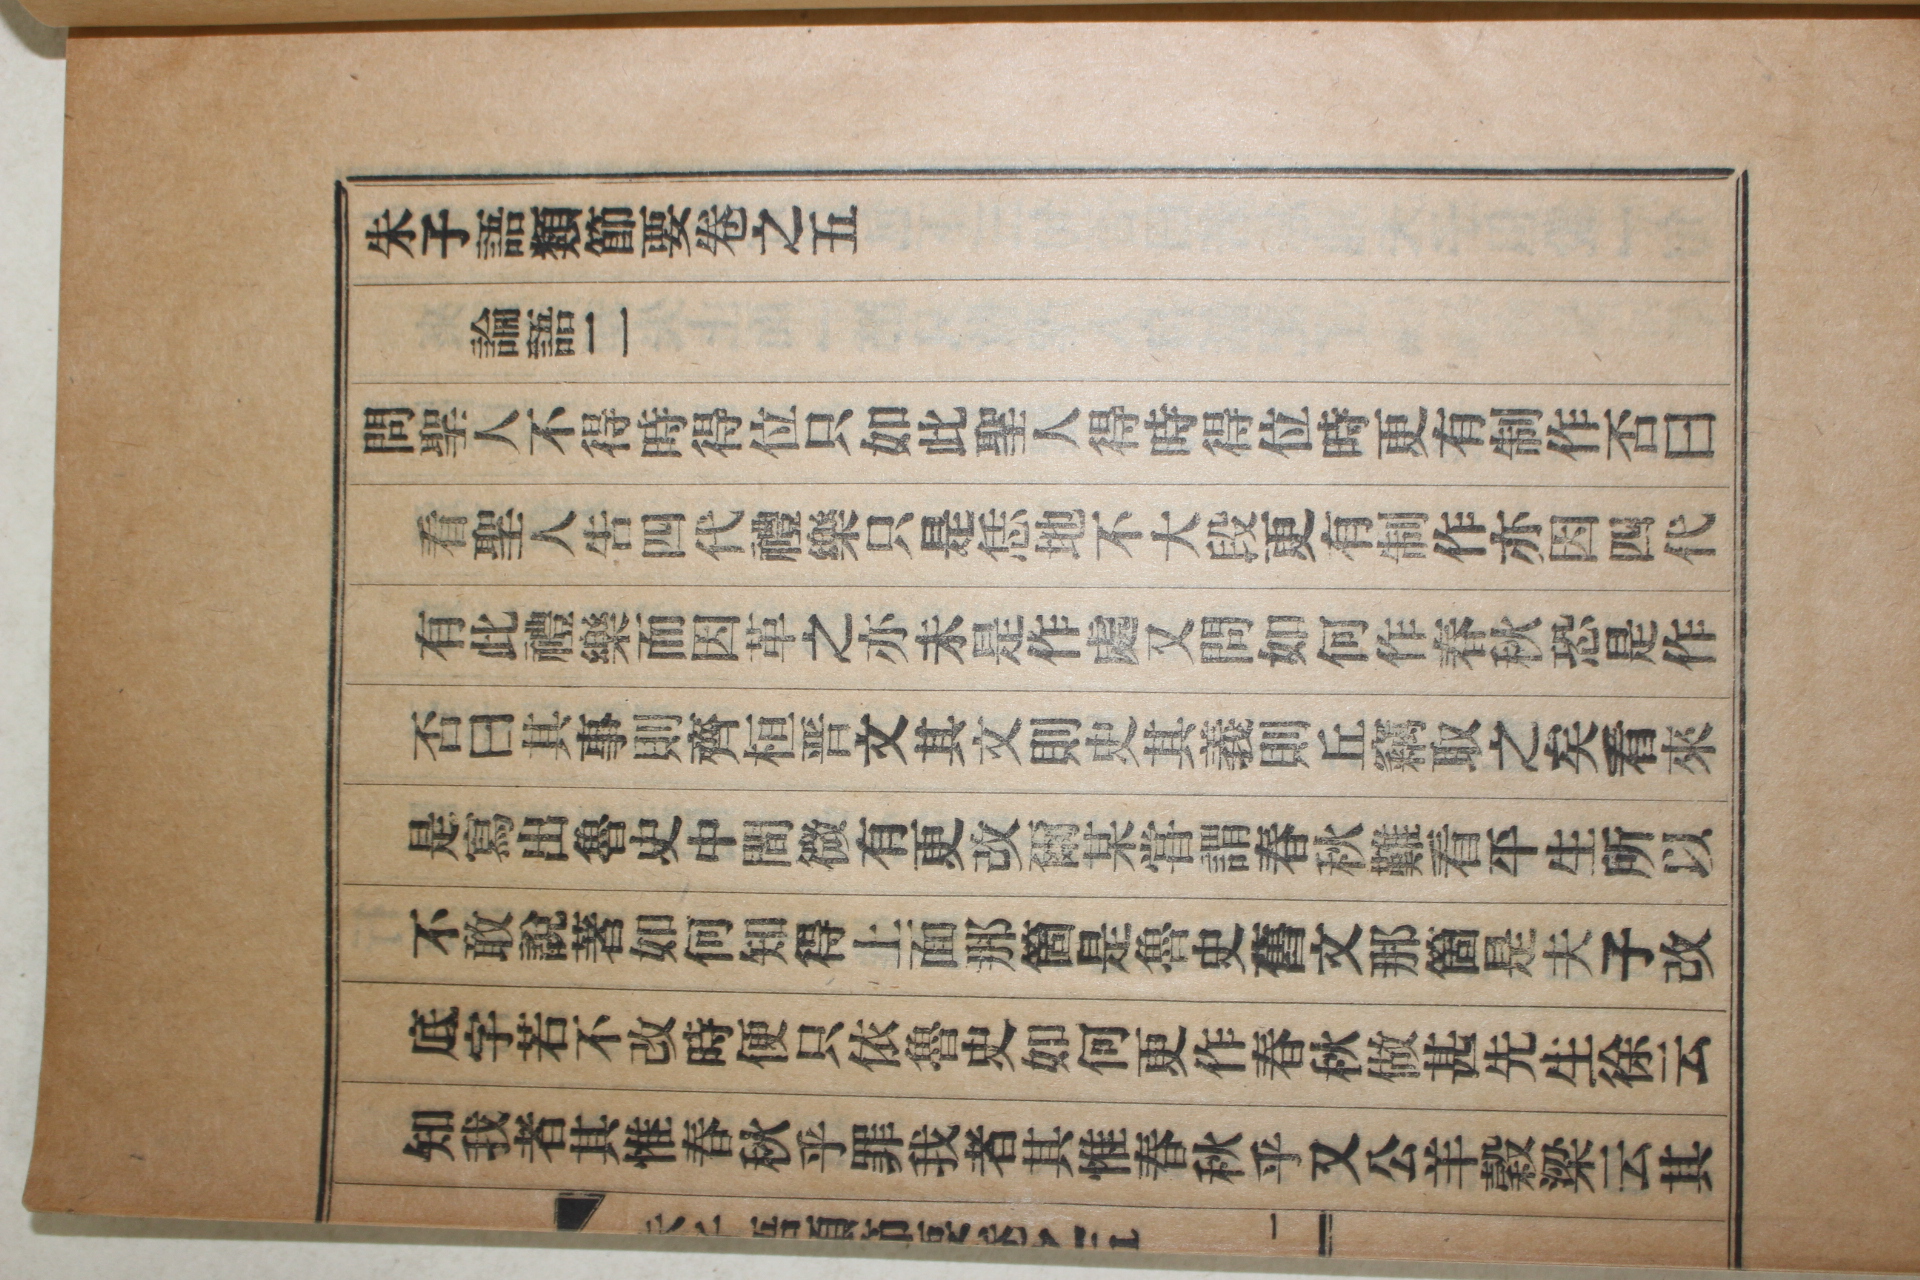 朱子語類節要卷之五
論語二
問聖人不得時得位只如此聖人得時得位時更有制作否曰
看聖人告四代禮樂只是恁地不大段更有制作亦因四代
有此禮樂而因革之亦未是作處又問如何作春秋恐是作
否曰其事則齊桓晋文其文則史其義則丘竊取之矣看來
是寫出魯史中間微有更改爾某嘗謂春秋難看平生所以
不敢說著如何知得上面那箇是魯史舊文那箇是夫子改
底字若不改時便只依魯史如何更作春秋做甚先生徐云
知我者其惟春秋乎罪我者其惟春秋乎又公羊穀梁云其
朱子語類節要卷之五
一